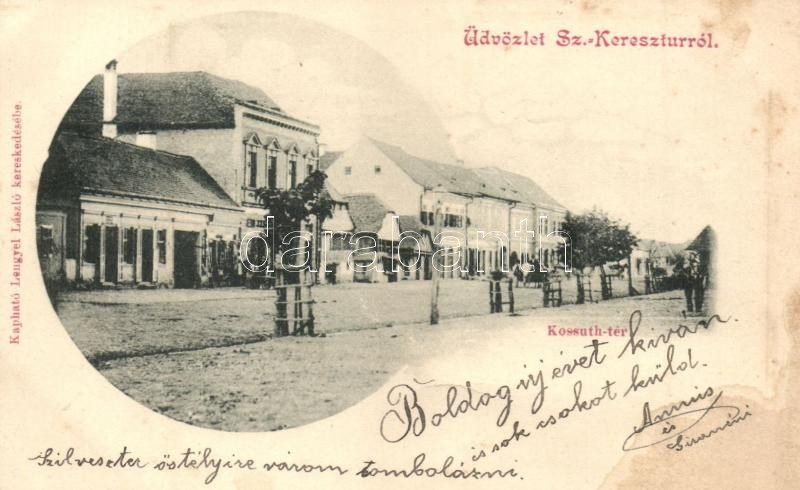 Üdvözlet Sz.-Kereszturról.
Kapható Lengyel László kereskedésébe.
darabanth
Kossuth-tér
Boldog új évet kiván
és sok csokot küld.
Annus
és
Szilveszter östélyire várom tombolázni.